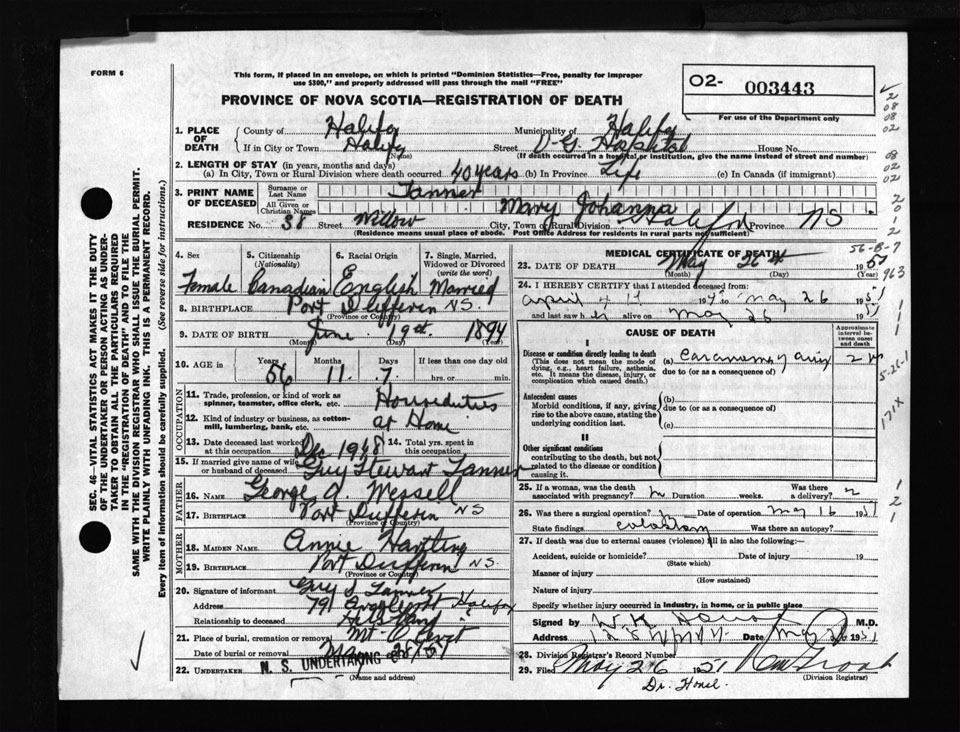 FORM 6
This form, if placed in an envelope, on which is printed "Dominion Statistics—Free, penalty for improper
use $300," and properly addressed will pass through the mail "FREE"
PROVINCE OF NOVA SCOTIA—REGISTRATION OF DEATH
02- 003443
For use of the Department only
1. PLACE OF DEATH
County of Halifax Municipality of Halifax
If in City or Town Halifax Street V-G. Hospital House No.
(Name) (If death occurred in a hospital or institution, give the name instead of street and number)
2. LENGTH OF STAY (in years, months and days)
(a) In City, Town or Rural Division where death occurred 40 years (b) In Province Life (c) In Canada (if immigrant)
3. PRINT NAME OF DECEASED
Surname or Last Name Tanner
All Given or Christian Names Mary Johanna
RESIDENCE No. 38 Street Willow City, Town or Rural Division Halifax Province NS
(Residence means usual place of abode. Post Office Address for residents in rural parts not sufficient)
4. Sex Female
5. Citizenship (Nationality) Canadian
6. Racial Origin English
7. Single, Married, Widowed or Divorced (write the word) Married
8. BIRTHPLACE Port Dufferin NS.
(Province or Country)
9. DATE OF BIRTH June 19th 1894
(Month) (Day) (Year)
10. AGE in Years 56 Months 11 Days 7 If less than one day old
hrs. or min.
OCCUPATION
11. Trade, profession, or kind of work as spinner, teamster, office clerk, etc. Houseduties
12. Kind of industry or business, as cotton-mill, lumbering, bank, etc. at Home
13. Date deceased last worked at this occupation Dec 1948 14. Total yrs. spent in this occupation
15. If married give name of wife or husband of deceased Guy Stewart Tanner
FATHER
16. NAME George A. Wessell
17. BIRTHPLACE Port Dufferin NS
(Province or Country)
MOTHER
18. MAIDEN NAME Annie Hartling
19. BIRTHPLACE Port Dufferin NS.
(Province or Country)
20. Signature of informant Guy S Tanner
Address 79 Halifax
Relationship to deceased Husband
21. Place of burial, cremation or removal Mt. Olivet
Date of burial or removal May 28/51
22. UNDERTAKER N. S. UNDERTAKING
(Name and address)
MEDICAL CERTIFICATE OF DEATH
23. DATE OF DEATH May 26th 1951
(Month) (Day) (Year)
24. I HEREBY CERTIFY that I attended deceased from:
April to May 26 1951
and last saw her alive on May 26 1951
CAUSE OF DEATH
Approximate interval between onset and death
I
Disease or condition directly leading to death
(This does not mean the mode of dying, e.g., heart failure, asthenia, etc. It means the disease, injury, or complication which caused death.
(a) Carcinoma of cervix 2 yrs
due to (or as a consequence of)
Antecedent causes
Morbid conditions, if any, giving rise to the above cause, stating the underlying condition last.
(b)
due to (or as a consequence of)
(c)
II
Other significant conditions
contributing to the death, but not related to the disease or condition causing it.
25. If a woman, was the death associated with pregnancy? n Duration weeks. Was there a delivery? n
26. Was there a surgical operation? Date of operation May 16 1951
State findings colostomy Was there an autopsy?
27. If death was due to external causes (violence) fill in also the following:—
Accident, suicide or homicide? Date of injury 19
(State which)
Manner of injury
(How sustained)
Nature of injury
Specify whether injury occurred in industry, in home, or in public place
Signed by M.D.
Address Date May 26 1951
28. Division Registrar's Record Number
29. Filed May 26 1951
(Division Registrar)
SEC. 46—VITAL STATISTICS ACT MAKES IT THE DUTY
OF THE UNDERTAKER OR PERSON ACTING AS UNDER-
TAKER TO OBTAIN ALL THE PARTICULARS REQUIRED
IN THE "REGISTRATION OF DEATH" AND TO FILE THE
SAME WITH THE DIVISION REGISTRAR WHO SHALL ISSUE THE BURIAL PERMIT.
WRITE PLAINLY WITH UNFADING INK. THIS IS A PERMANENT RECORD.
Every item of information should be carefully supplied. (See reverse side for instructions.)
2
08
08
02
08
02
02
2
0
1
0
2
56-B-7
963
1
1
1
5-26-1
171X
1
2
1